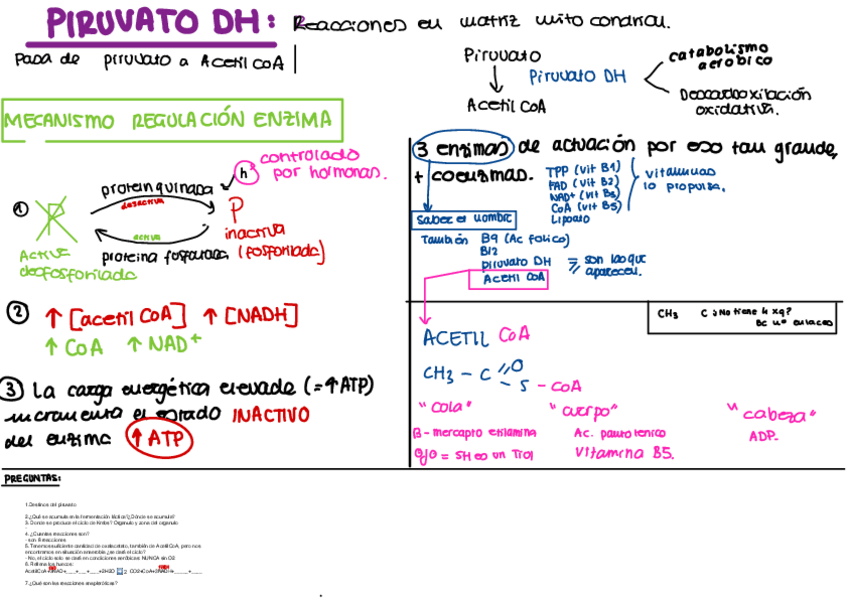 PIRUVATO DH: Reacciones en matriz mitocondrial.
pasa de piruvato a Acetil CoA
Piruvato
Piruvato DH
Acetil CoA
catabolismo
aeróbico
Descarboxilación
oxidativa.
MECANISMO REGULACIÓN ENZIMA
h
controlado
por hormonas.
1
protein quinasa
desactiva
P
inactiva
(fosforilada)
activa
proteina fosfatasa
Activa
desfosforilada
2 ↑ [acetil CoA] ↑ [NADH]
↑ CoA ↑ NAD+
3 La carga energética elevada (=↑ATP)
incrementa el estado INACTIVO
del enzima ↑ ATP
3 enzimas de actuación por eso tan grande,
+ coenzimas.
TPP (vit B1)
FAD (vit B2)
NAD+ (vit B3)
CoA (vit B5)
Lipoato
vitaminas
lo propulsa.
Saber el nombre
También B9 (Ac folico)
B12
piruvato DH
Acetil CoA
= son las que
aparecen.
CH3 C ¿No tiene 4 xq?
nº enlaces
ACETIL CoA
CH3 - C
O
- S - CoA
"cola" "cuerpo" "cabeza"
β-mercapto etilamina Ac. pantotenico ADP.
ojo = SH es un Tiol Vitamina B5.
PREGUNTAS:
1.Destinos del piruvato
2.¿Qué se acumula en la fermentación láctica? ¿Dónde se acumula?
3. Donde se produce el ciclo de Krebs? Organulo y zona del organulo
4. ¿Cuantas reacciones son?
- son 8 reacciones
5. Tenemos suficiente cantidad de oxalacetato, también de Acetil CoA, pero nos
encontramos en situación anaerobia ¿se dará el ciclo?
- No, el ciclo solo se dará en condiciones aeróbicas. NUNCA sin O2
6. Rellena los huecos:
7. ¿Qué son las reacciones anapleróticas?